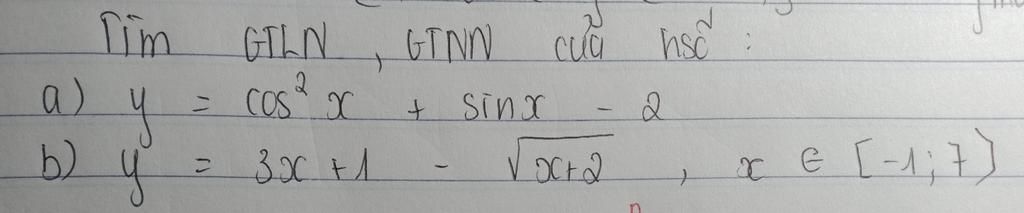 Tìm GTLN, GTNN của hsố :
a) y = cos² x + sinx - 2
b) y = 3x + 1 - √(x+2) , x ∈ [-1; 7]